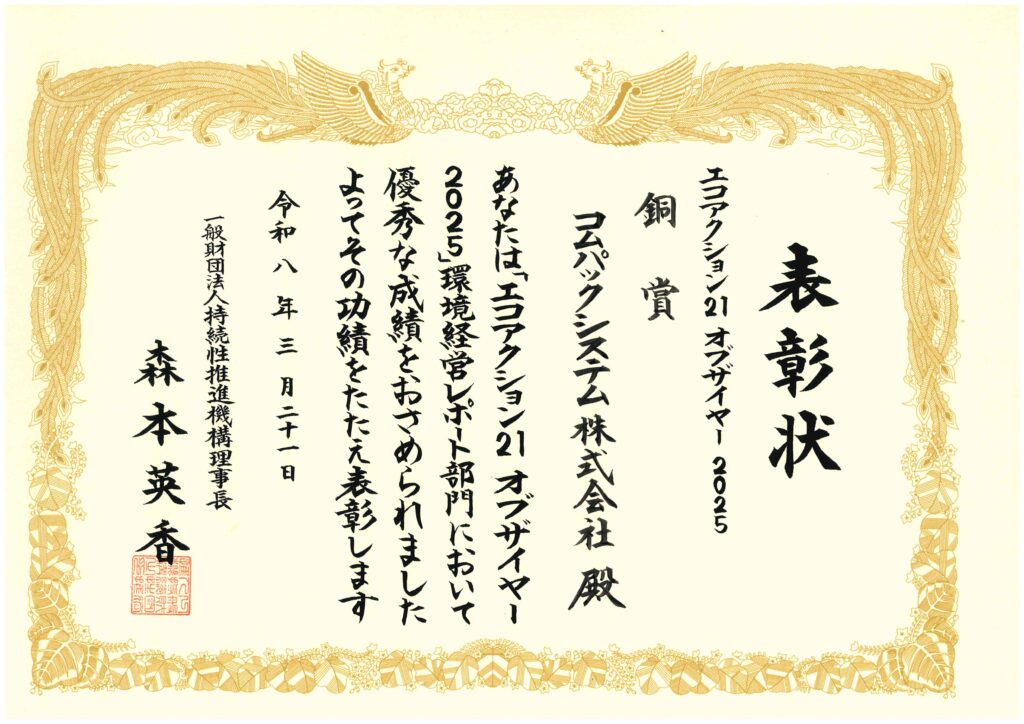 表彰状
エコアクション21 オブザイヤー 2025
銅賞
コムパックシステム株式会社 殿
あなたは、「エコアクション21 オブザイヤー
2025」環境経営レポート部門において
優秀な成績をおさめられました
よってその功績をたたえ表彰します
令和八年三月二十一日
一般財団法人持続性推進機構理事長
森本英香